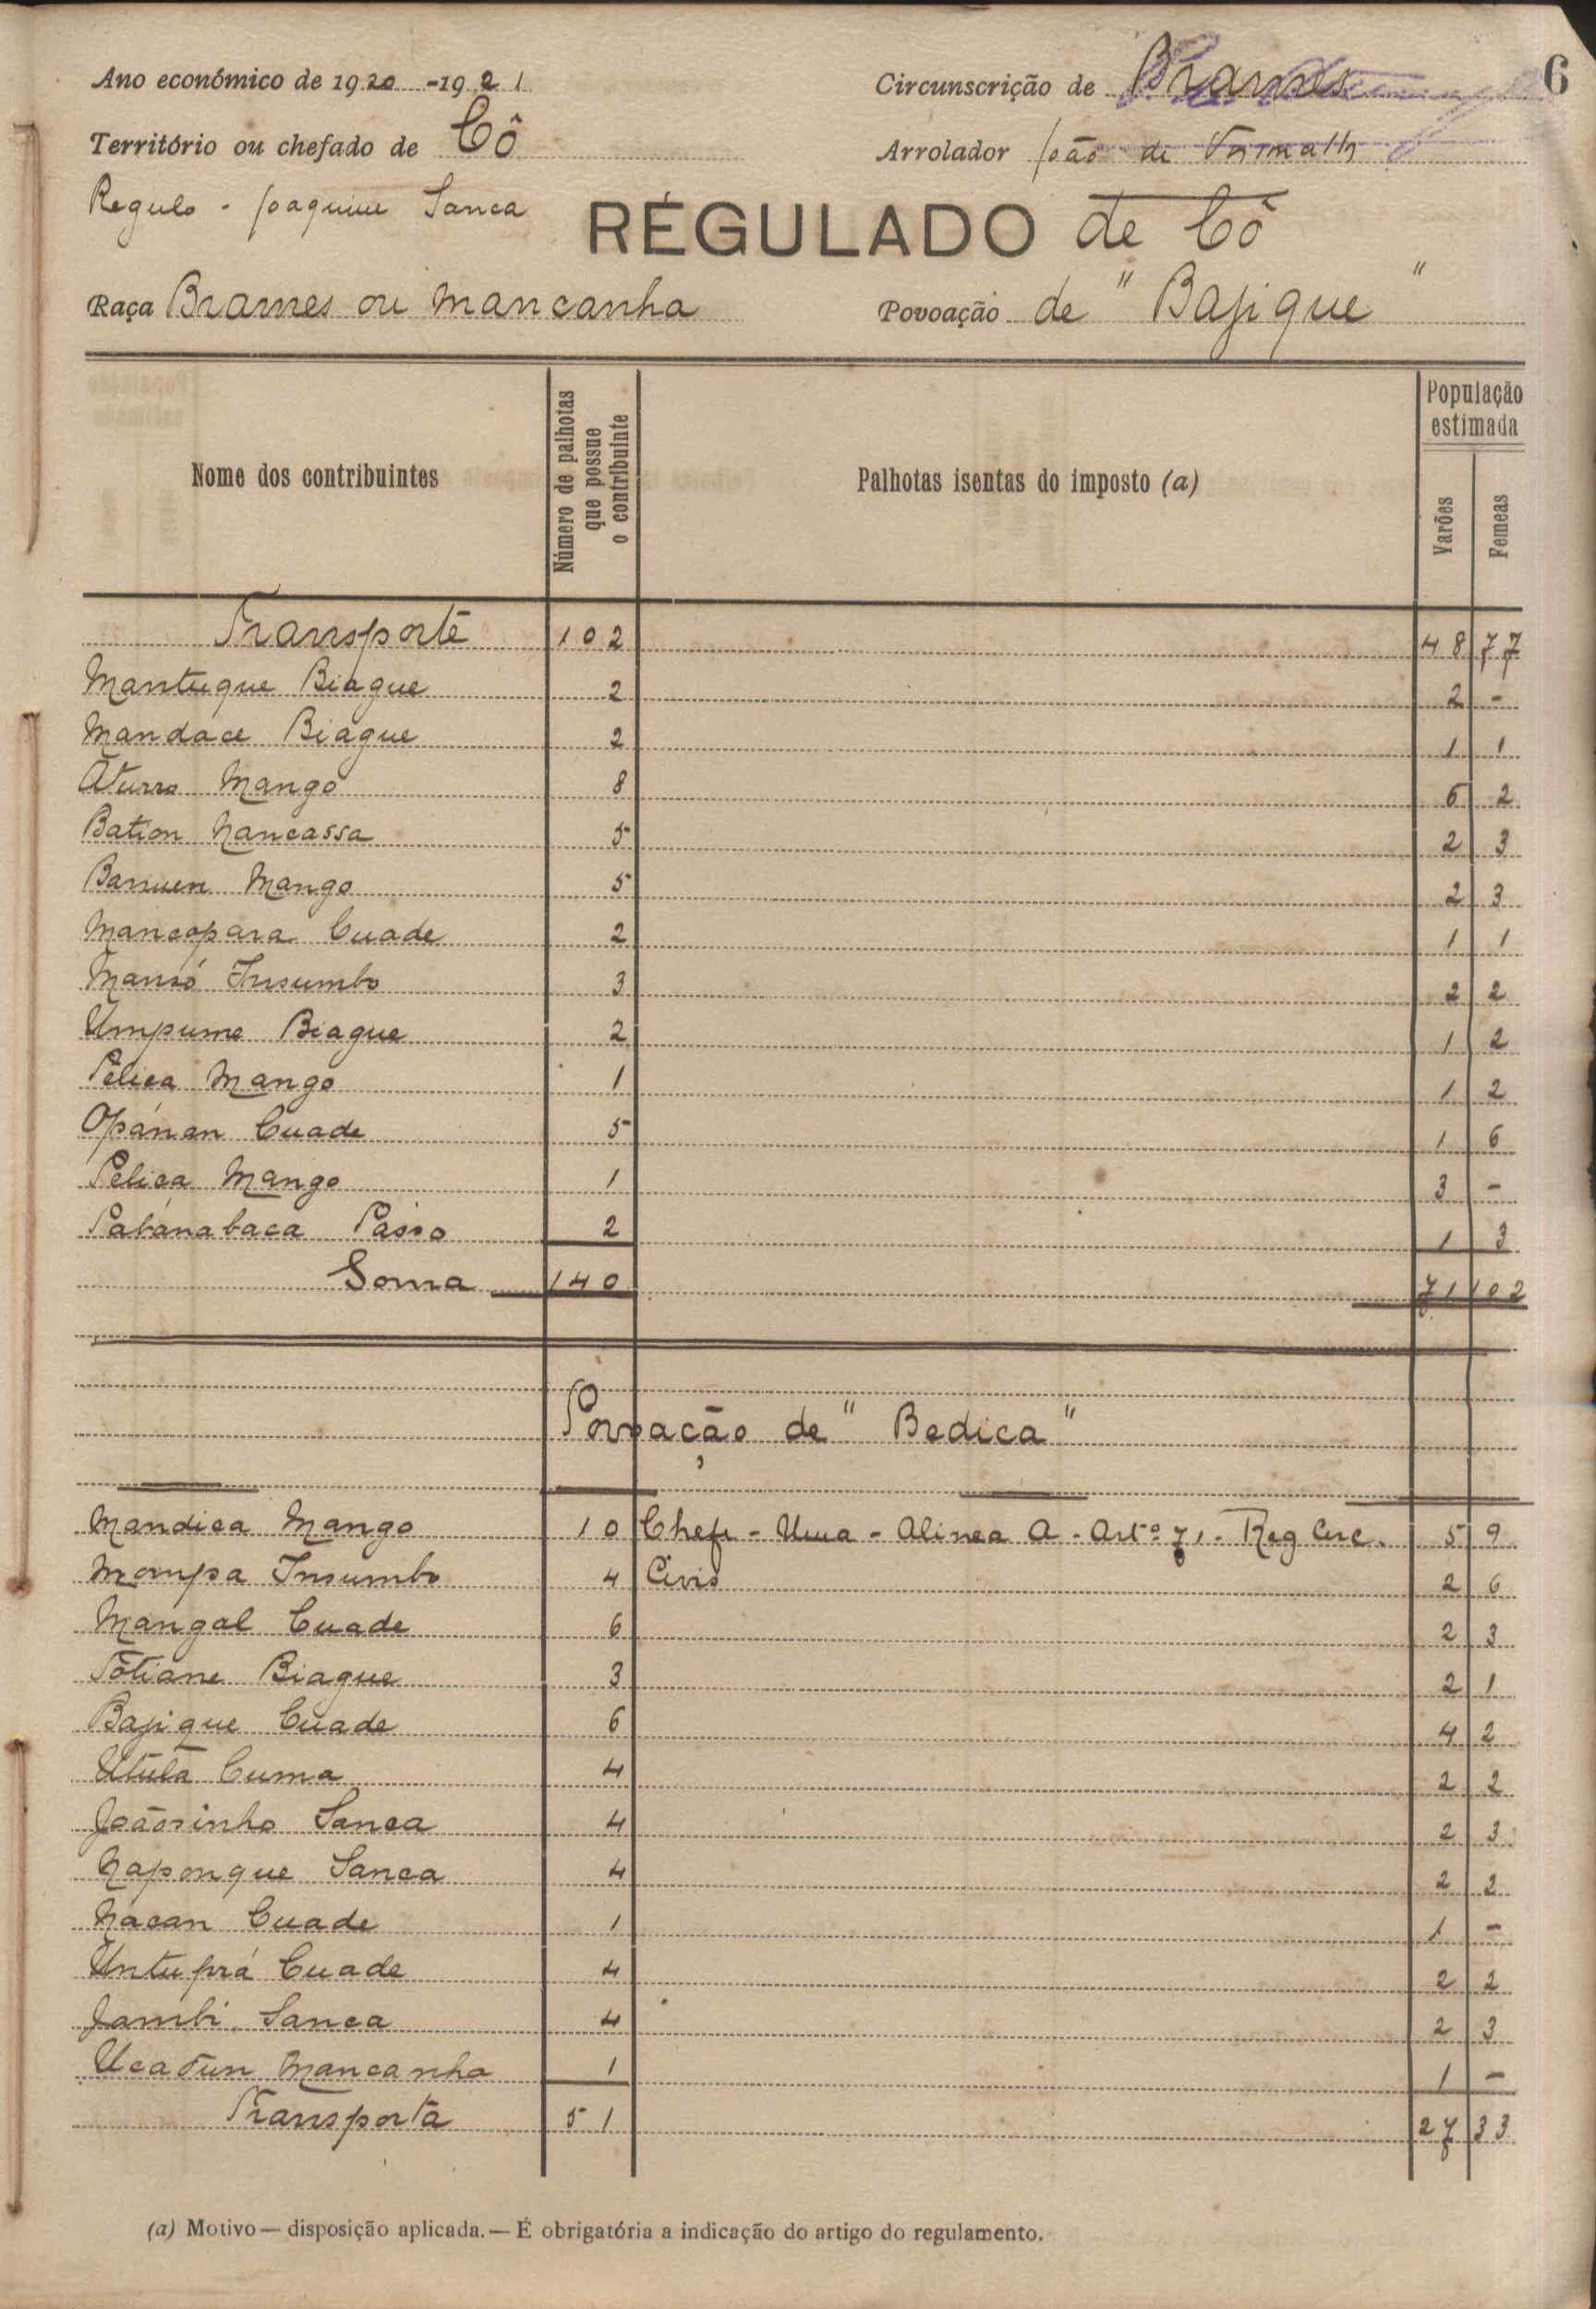 6
Ano económico de 1920-1921 Circunscrição de Brames
Território ou chefado de Cô Arrolador João de
Regulo - Joaquim Sanca RÉGULADO de Cô
Raça Brames ou Mancanha Povoação de "Bajique"
Nome dos contribuintes Número de palhotas que possue o contribuinte Palhotas isentas do imposto (a) População estimada Varões Femeas
Transporte 102 48 77
Mantuque Biague 2 2 -
Mandace Biague 2 1 1
Aturro Mango 8 6 2
Bation Nancassa 5 2 3
Banuen Mango 5 2 3
Mancopara Cuade 2 1 1
Mansó Insumbo 3 2 2
Umpume Biague 2 1 2
Pelica Mango 1 1 2
Opánan Cuade 5 1 6
Pelica Mango 1 3 -
Pabánabaca Pásso 2 1 3
Soma 140 71 102
Povoação de "Bedica"
Mandica Mango 10 Chefe - Uma - Alinea A - Artº 71 - Reg Circ. 5 9
Mompa Insumbo 4 Civis 2 6
Mangal Cuade 6 2 3
Tótiane Biague 3 2 1
Bajique Cuade 6 4 2
Ututa Cuma 4 2 2
Joãosinho Sanca 4 2 3
Naponque Sanca 4 2 2
Nacan Cuade 1 1 -
Untuprá Cuade 4 2 2
Jambi Sanca 4 2 3
Ucatun Mancanha 1 1 -
Transporta 51 27 33
(a) Motivo — disposição aplicada. — É obrigatória a indicação do artigo do regulamento.